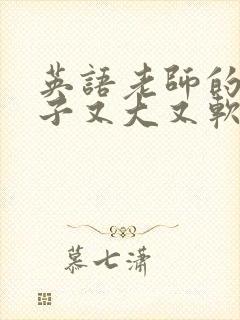 英語老師的
子又大又軟
慕七瀟